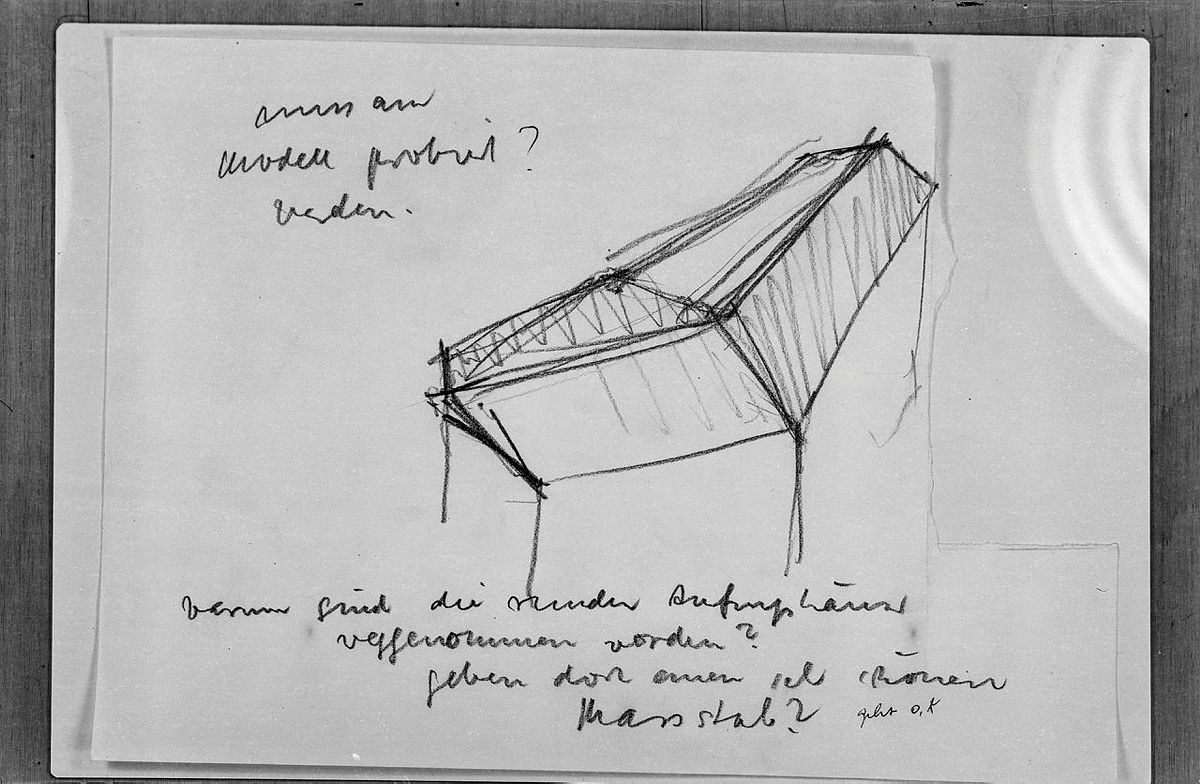 muss am
Modell probiert ?
werden.
warum sind die runden Aufzugshäuser
weggenommen worden?
geben doch einen schönen
Massstab?
geht o,k